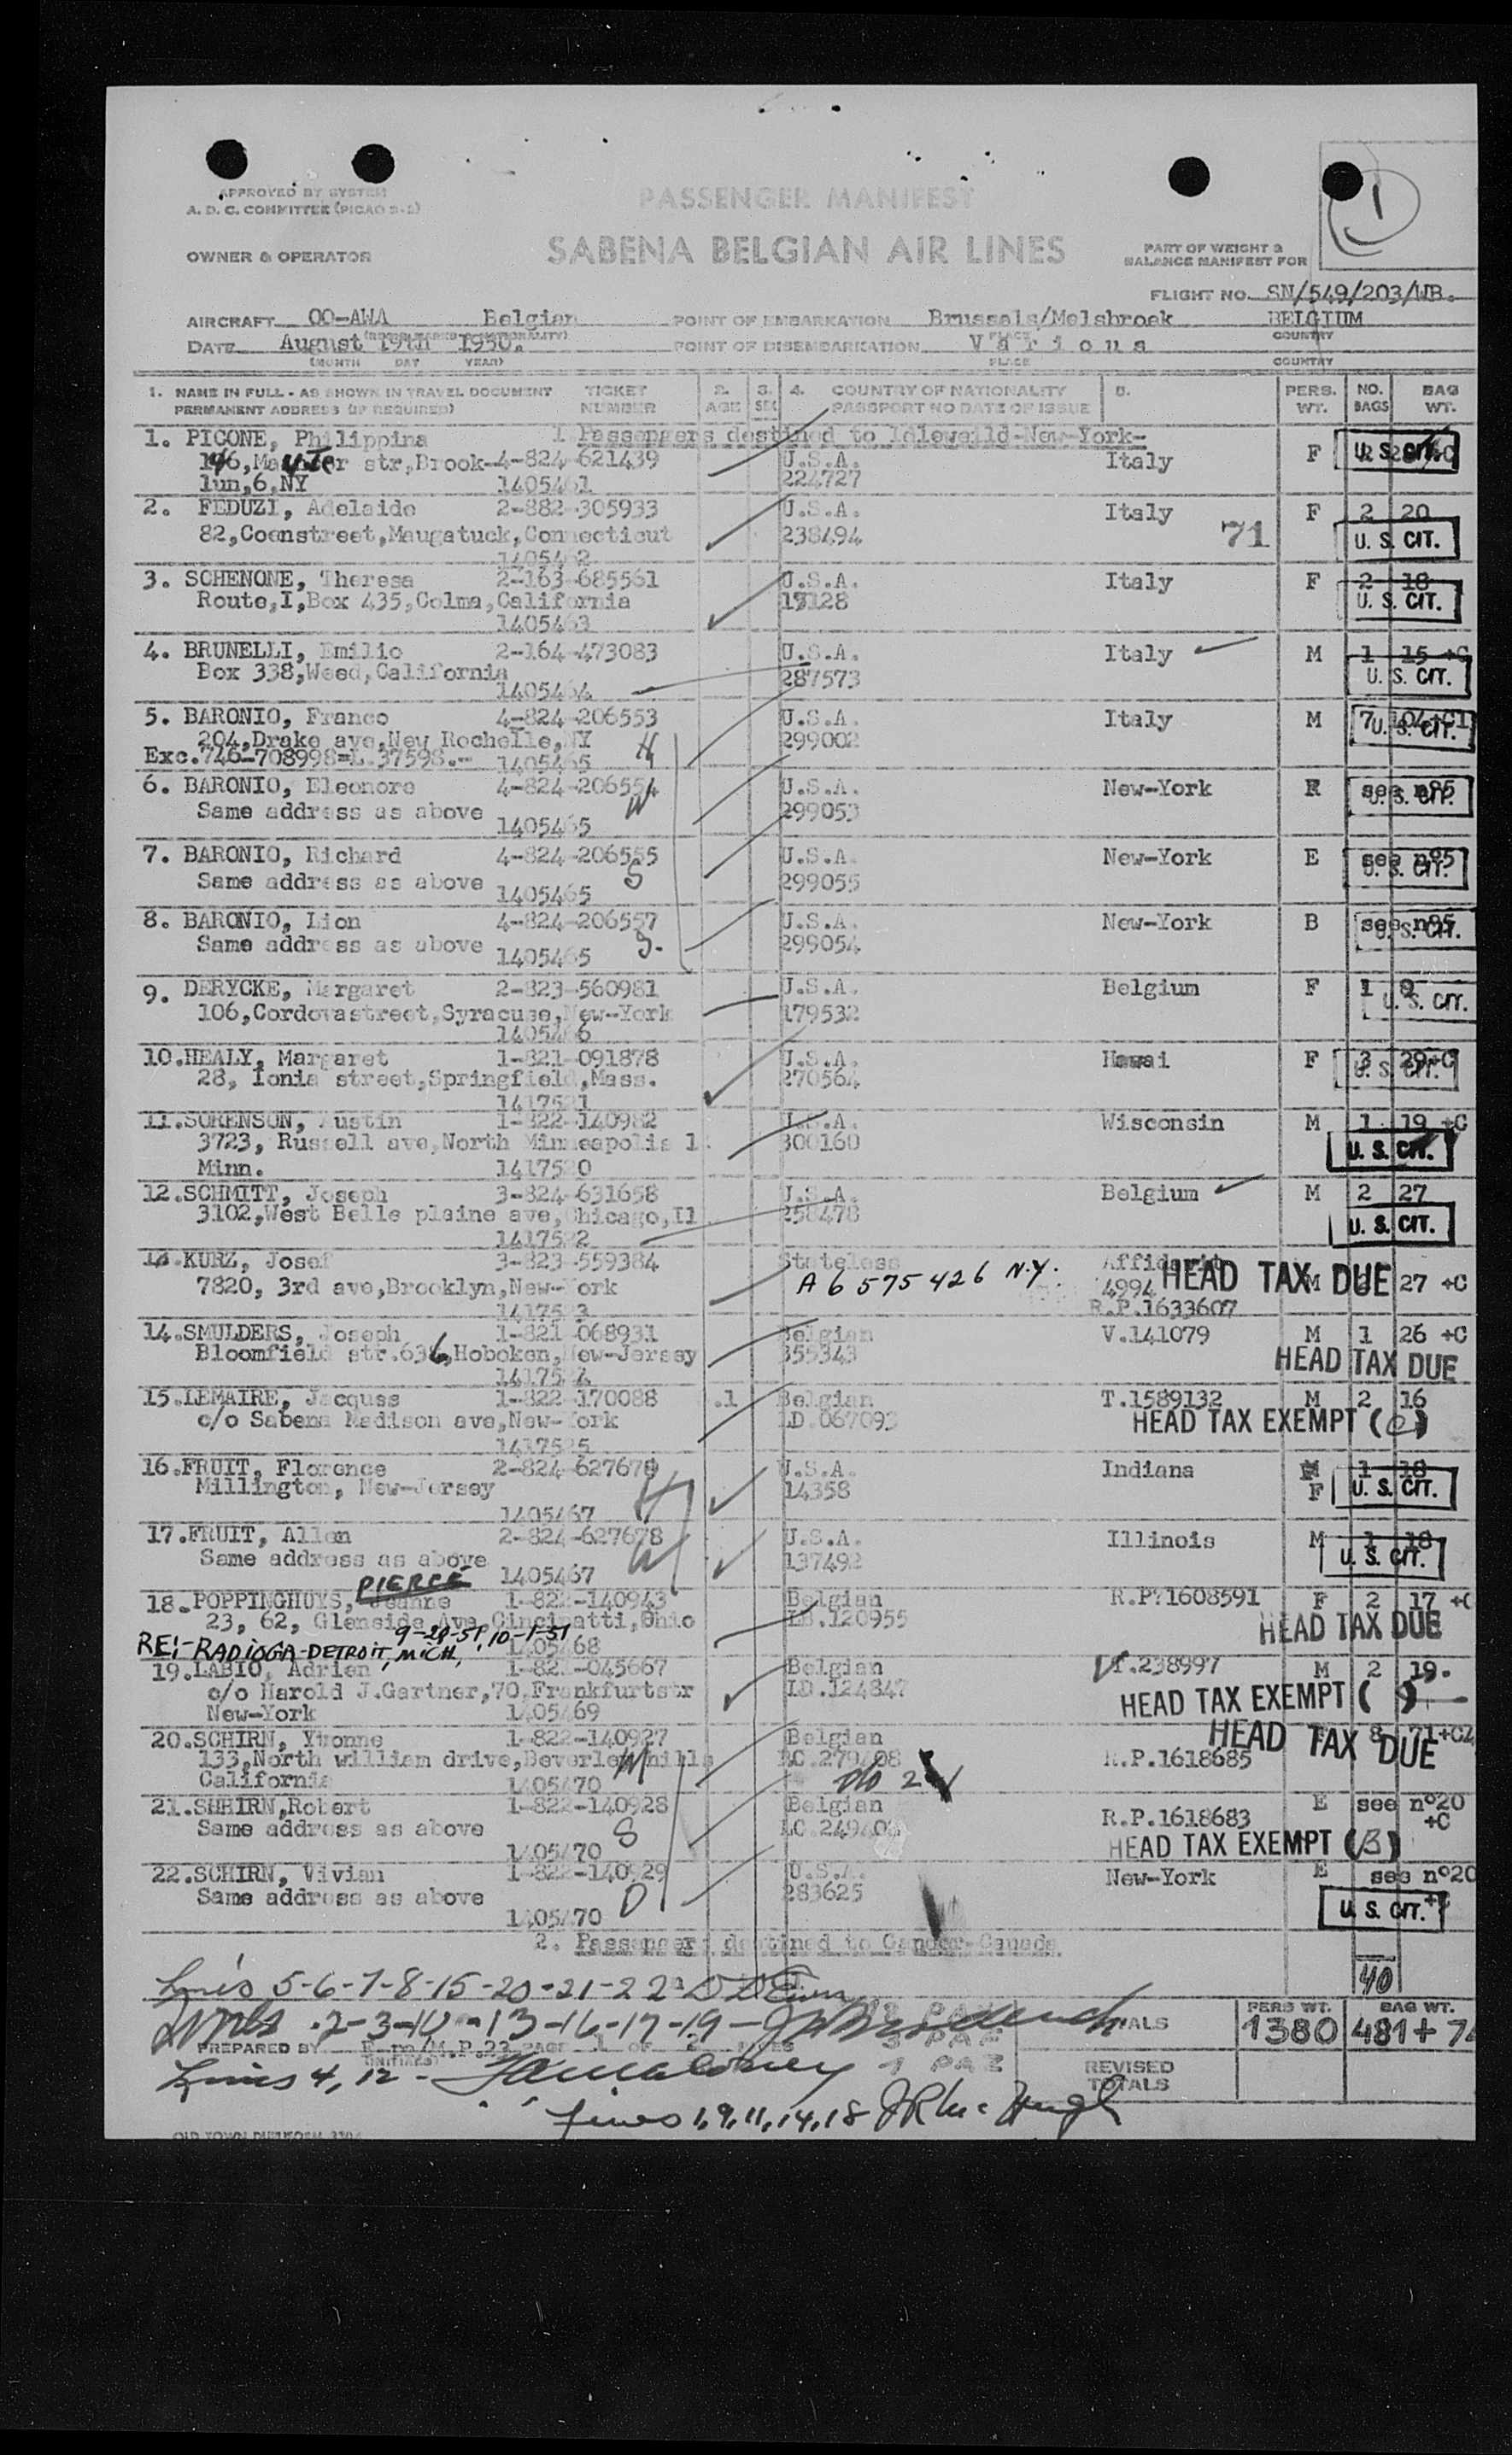 APPROVED BY SYSTEM
A. D. C. COMMITTEE (PICAO 2-2)
PASSENGER MANIFEST
1
OWNER & OPERATOR
SABENA BELGIAN AIR LINES
PART OF WEIGHT &
BALANCE MANIFEST FOR
FLIGHT NO. SN/549/203/WB.
AIRCRAFT OO-AWA Belgian POINT OF EMBARKATION Brussels/Melsbroek BELGIUM
PLACE COUNTRY
DATE August 19th 1950. POINT OF DISEMBARKATION V a r i o u s
(MONTH DAY YEAR) PLACE COUNTRY
1. NAME IN FULL - AS SHOWN IN TRAVEL DOCUMENT TICKET 2. 3. 4. COUNTRY OF NATIONALITY 5. PERS. NO. BAG
PERMANENT ADDRESS (IF REQUIRED) NUMBER AGE SEX PASSPORT NO DATE OF ISSUE WT. BAGS WT.
1. Passengers destined to Idleweild-New-York-
1. PICONE, Philippina
146, str,Brook- 4-824-621439 U.S.A. Italy F U. S. CIT.
lun,6,NY 1405461 224727
2. FEDUZI, Adelaide 2-882-305933 U.S.A. Italy F 2 20
82,Coenstreet,Maugatuck,Connecticut 238494 71 U. S. CIT.
1405462
3. SCHENONE, Theresa 2-163-685561 U.S.A. Italy F 2 18
Route,I,Box 435,Colma,California U. S. CIT.
1405463
4. BRUNELLI, Emilio 2-164-473083 U.S.A. Italy M 1 15 +C
Box 338,Weed,California 287573 U. S. CIT.
1405464
5. BARONIO, Franco 4-824-206553 U.S.A. Italy M 7 U. S. CIT.
204,Drake ave,New Rochelle,NY 299002 H
Exc.746-708998=L.37598.- 1405465
6. BARONIO, Eleonore 4-824-206554 U.S.A. New-York F see n°5
Same address as above 1405465 W 299053 U. S. CIT.
7. BARONIO, Richard 4-824-206555 U.S.A. New-York E see n°5
Same address as above 1405465 S 299055 U. S. CIT.
8. BARONIO, Lion 4-824-206557 U.S.A. New-York B see n°5
Same address as above 1405465 S. 299054 U. S. CIT.
9. DERYCKE, Margaret 2-823-560981 U.S.A. Belgium F 1 9
106,Cordovastreet,Syracuse,New-York 179532 U. S. CIT.
1405466
10.HEALY, Margaret 1-821-091878 U.S.A. Hawai F 3 29+C
28, Ionia street,Springfield,Mass. 270564 U. S. CIT.
1417521
11.SORENSON, Austin 1-822-140982 U.S.A. Wisconsin M 1 19 +C
3723, Russell ave,North Minneapolis 1. 300160 U. S. CIT.
Minn. 1417520
12.SCHMITT, Joseph 3-824-631658 U.S.A. Belgium M 2 27
3102,West Belle plaine ave,Chicago,Il 258478 U. S. CIT.
1417522
13.KURZ, Josef 3-823-559384 Stateless Affidavit
7820, 3rd ave,Brooklyn,New-York A 6 575 426 N.Y. 4994 HEAD TAX DUE M 27 +C
1417523 R.P.1633607
14.SMULDERS, Joseph 1-821-068931 Belgian V.141079 M 1 26 +C
Bloomfield str.636,Hoboken,New-Jersey 355343 HEAD TAX DUE
1417524
15.LEMAIRE, Jacques 1-822-170088 Belgian T.1589132 M 2 16
c/o Sabena Madison ave,New-York LD.067093 HEAD TAX EXEMPT (C)
1417525
16.FRUIT, Florence 2-824-627679 U.S.A. Indiana M 1 18
Millington, New-Jersey 14358 F U. S. CIT.
1405467 H
17.FRUIT, Allen 2-824-627678 U.S.A. Illinois M 1 18
Same address as above 1405467 W 137492 U. S. CIT.
PIERCE
18.POPPINGHUYS, Jeanne 1-822-140943 Belgian R.P?1608591 F 2 17 +C
23, 62, Glenside Ave,Cincinatti,Ohio LB.120955 HEAD TAX DUE
RE:-RADIOGA-DETROIT, MICH, 9-28-51, 10-1-51 1405468
19.LABIO, Adrien 1-821-045667 Belgian T.238997 M 2 19.
c/o Harold J.Gartner,70,Frankfurtstr LD.124847 HEAD TAX EXEMPT ( )
New-York 1405469
20.SCHIRN, Yvonne 1-822-140927 Belgian HEAD TAX DUE 8 71+C
133,North william drive,Beverley hills M R.P.1618685
California 1405470
21.SHHIRN,Robert 1-822-140928 Belgian R.P.1618683 E see n°20
Same address as above S +C
1405470 HEAD TAX EXEMPT (B)
22.SCHIRN, Vivian 1-822-140929 U.S.A. New-York E see n°20
Same address as above 283625 U. S. CIT.
1405470 D
2. Passengers destined to Gander-Canada
40
Lines 5-6-7-8-15-20-21-22
Lines 2-3-10-13-16-17-19-
PERS WT. BAG WT.
TOTALS 1380 481+
PREPARED BY PAGE 1 OF 2
REVISED
TOTALS
Lines 4, 12 -
Lines 1,9,11,14,18 JR Mc Hugh